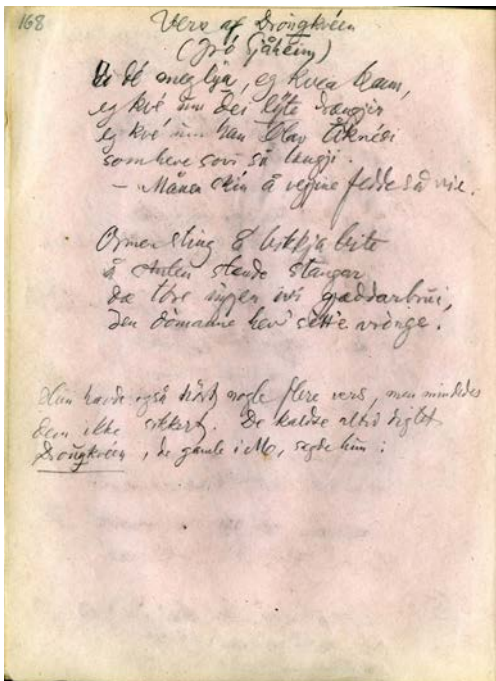 168
Vers af Drougkvéen
(frå Sjåheim)
Vi dé meg lya, eg kvea kann,
eg kvé um dei lyte drængjir
eg kvé um han Olav Åknési
som heve sovi så långji.
— Månen skin å vegjine fedde så vie.
Ormen sting å bikkja bite
å stuten stende stangar
da tore ingjen ivi gjaddarbrui,
den dómanne hev' sette vrónge.
Hun havde også hørt nogle flere vers, men mindedes
dem ikke sikkert. De kaldte altid digtet
Drougkvéen, de gamle i Mo, sagde hun: